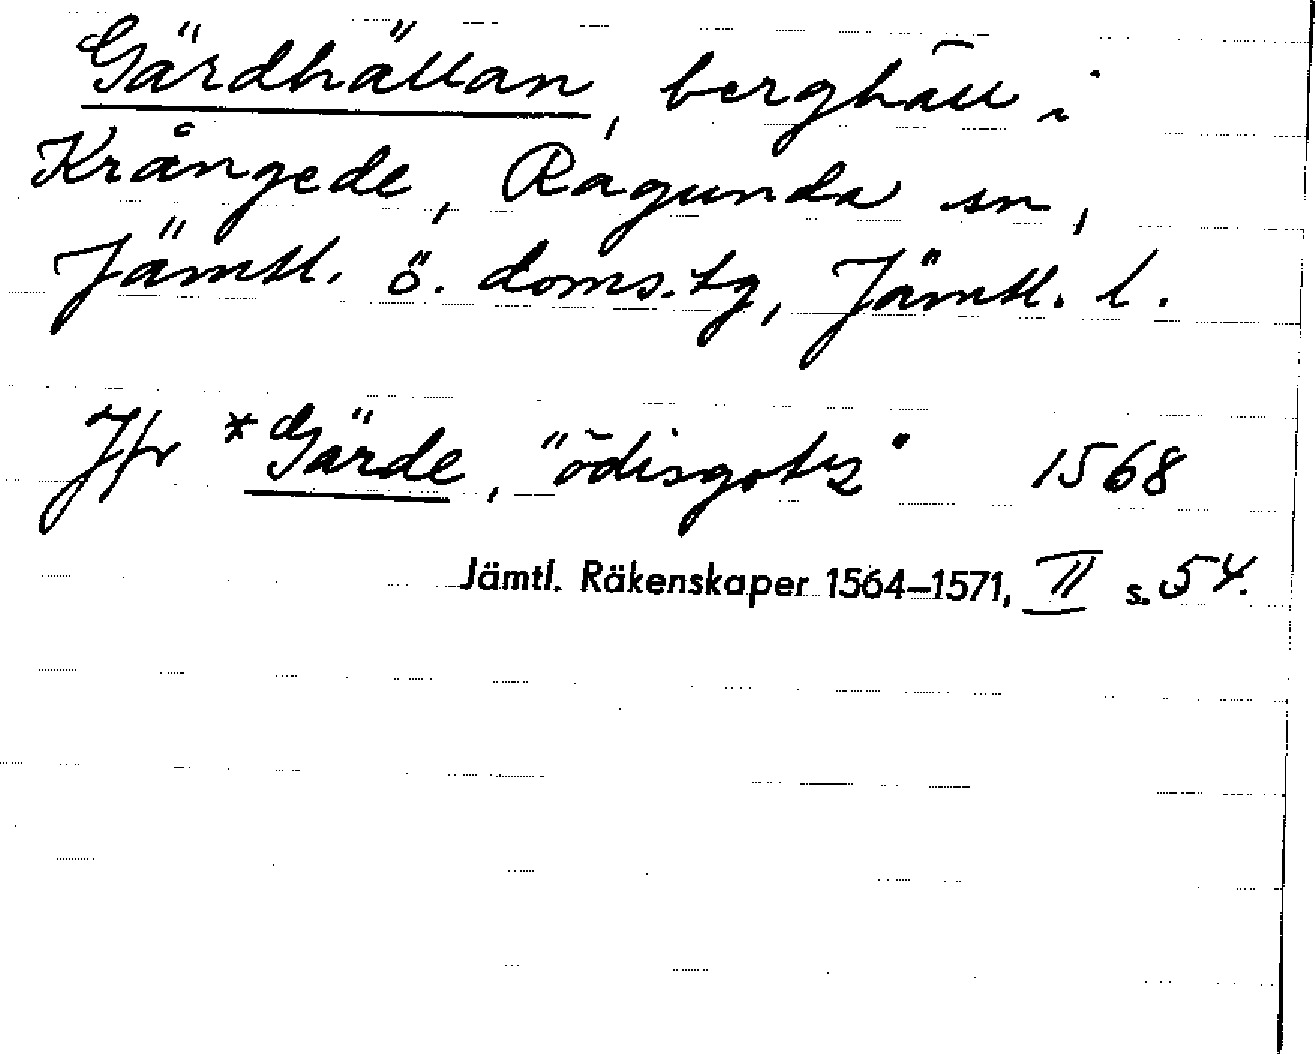 Gärdhällan, berghäll i
Krångede, Ragunda sn,
Jämtl. ö. doms.tg, Jämtl. l.
Jfr *Gärde, "ödisgotz" 1568
Jämtl. Räkenskaper 1564–1571, II s. 54.